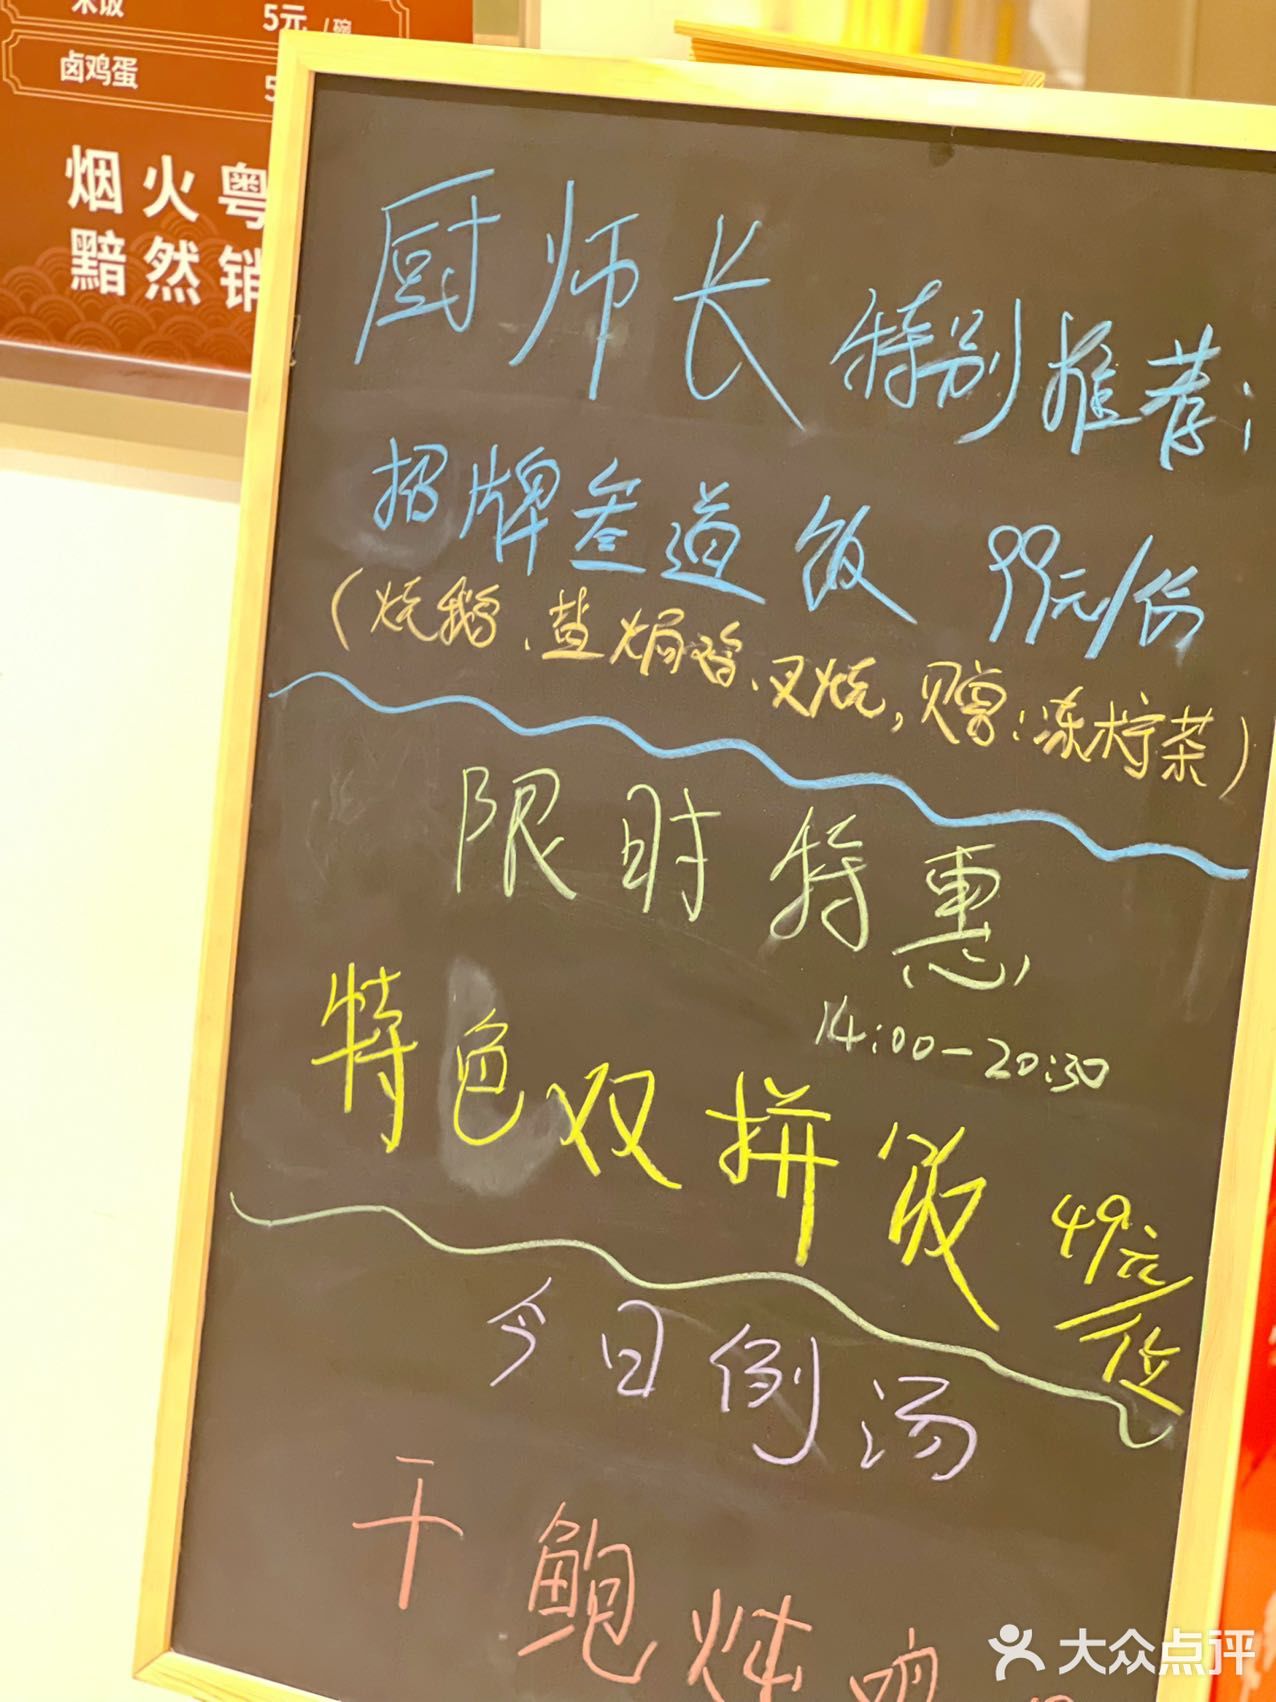 米饭 5元/碗
卤鸡蛋 5
烟火粤
黯然销
厨师长 特别推荐：
招牌叁道饭 99元/份
（烧鹅、盐焗鸡、叉烧，赠：冻柠茶）
限时特惠
14:00-20:30
特色双拼饭 49元/位
今日例汤
干鲍炖
大众点评